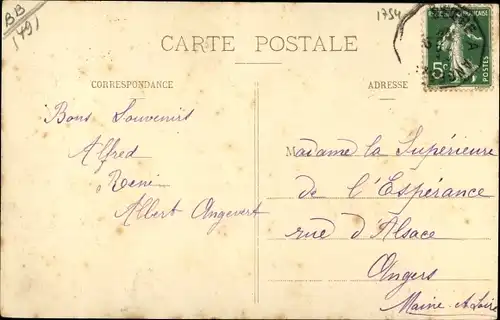 BB
(49)
1754
CARTE POSTALE
CORRESPONDANCE
ADRESSE
5c
POSTES
Bons Souvenirs
Alfred
René
Albert Angevert
Madame la Supérieure
de l'Espérance
rue d'Alsace
Angers
Maine & Loire